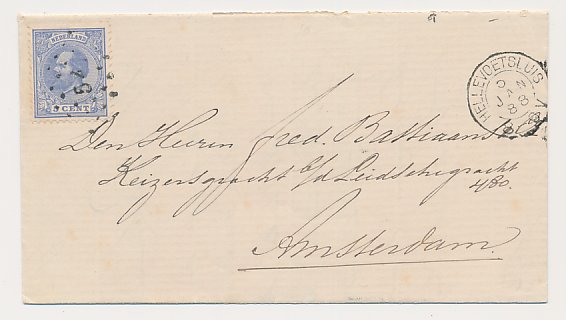 NEDERLAND
5 CENT
HELLEVOETSLUIS
JAN
88
Den Heeren Fred. Bastiaans
Keizersgracht b/d Leidschegracht
480.
Amsterdam.